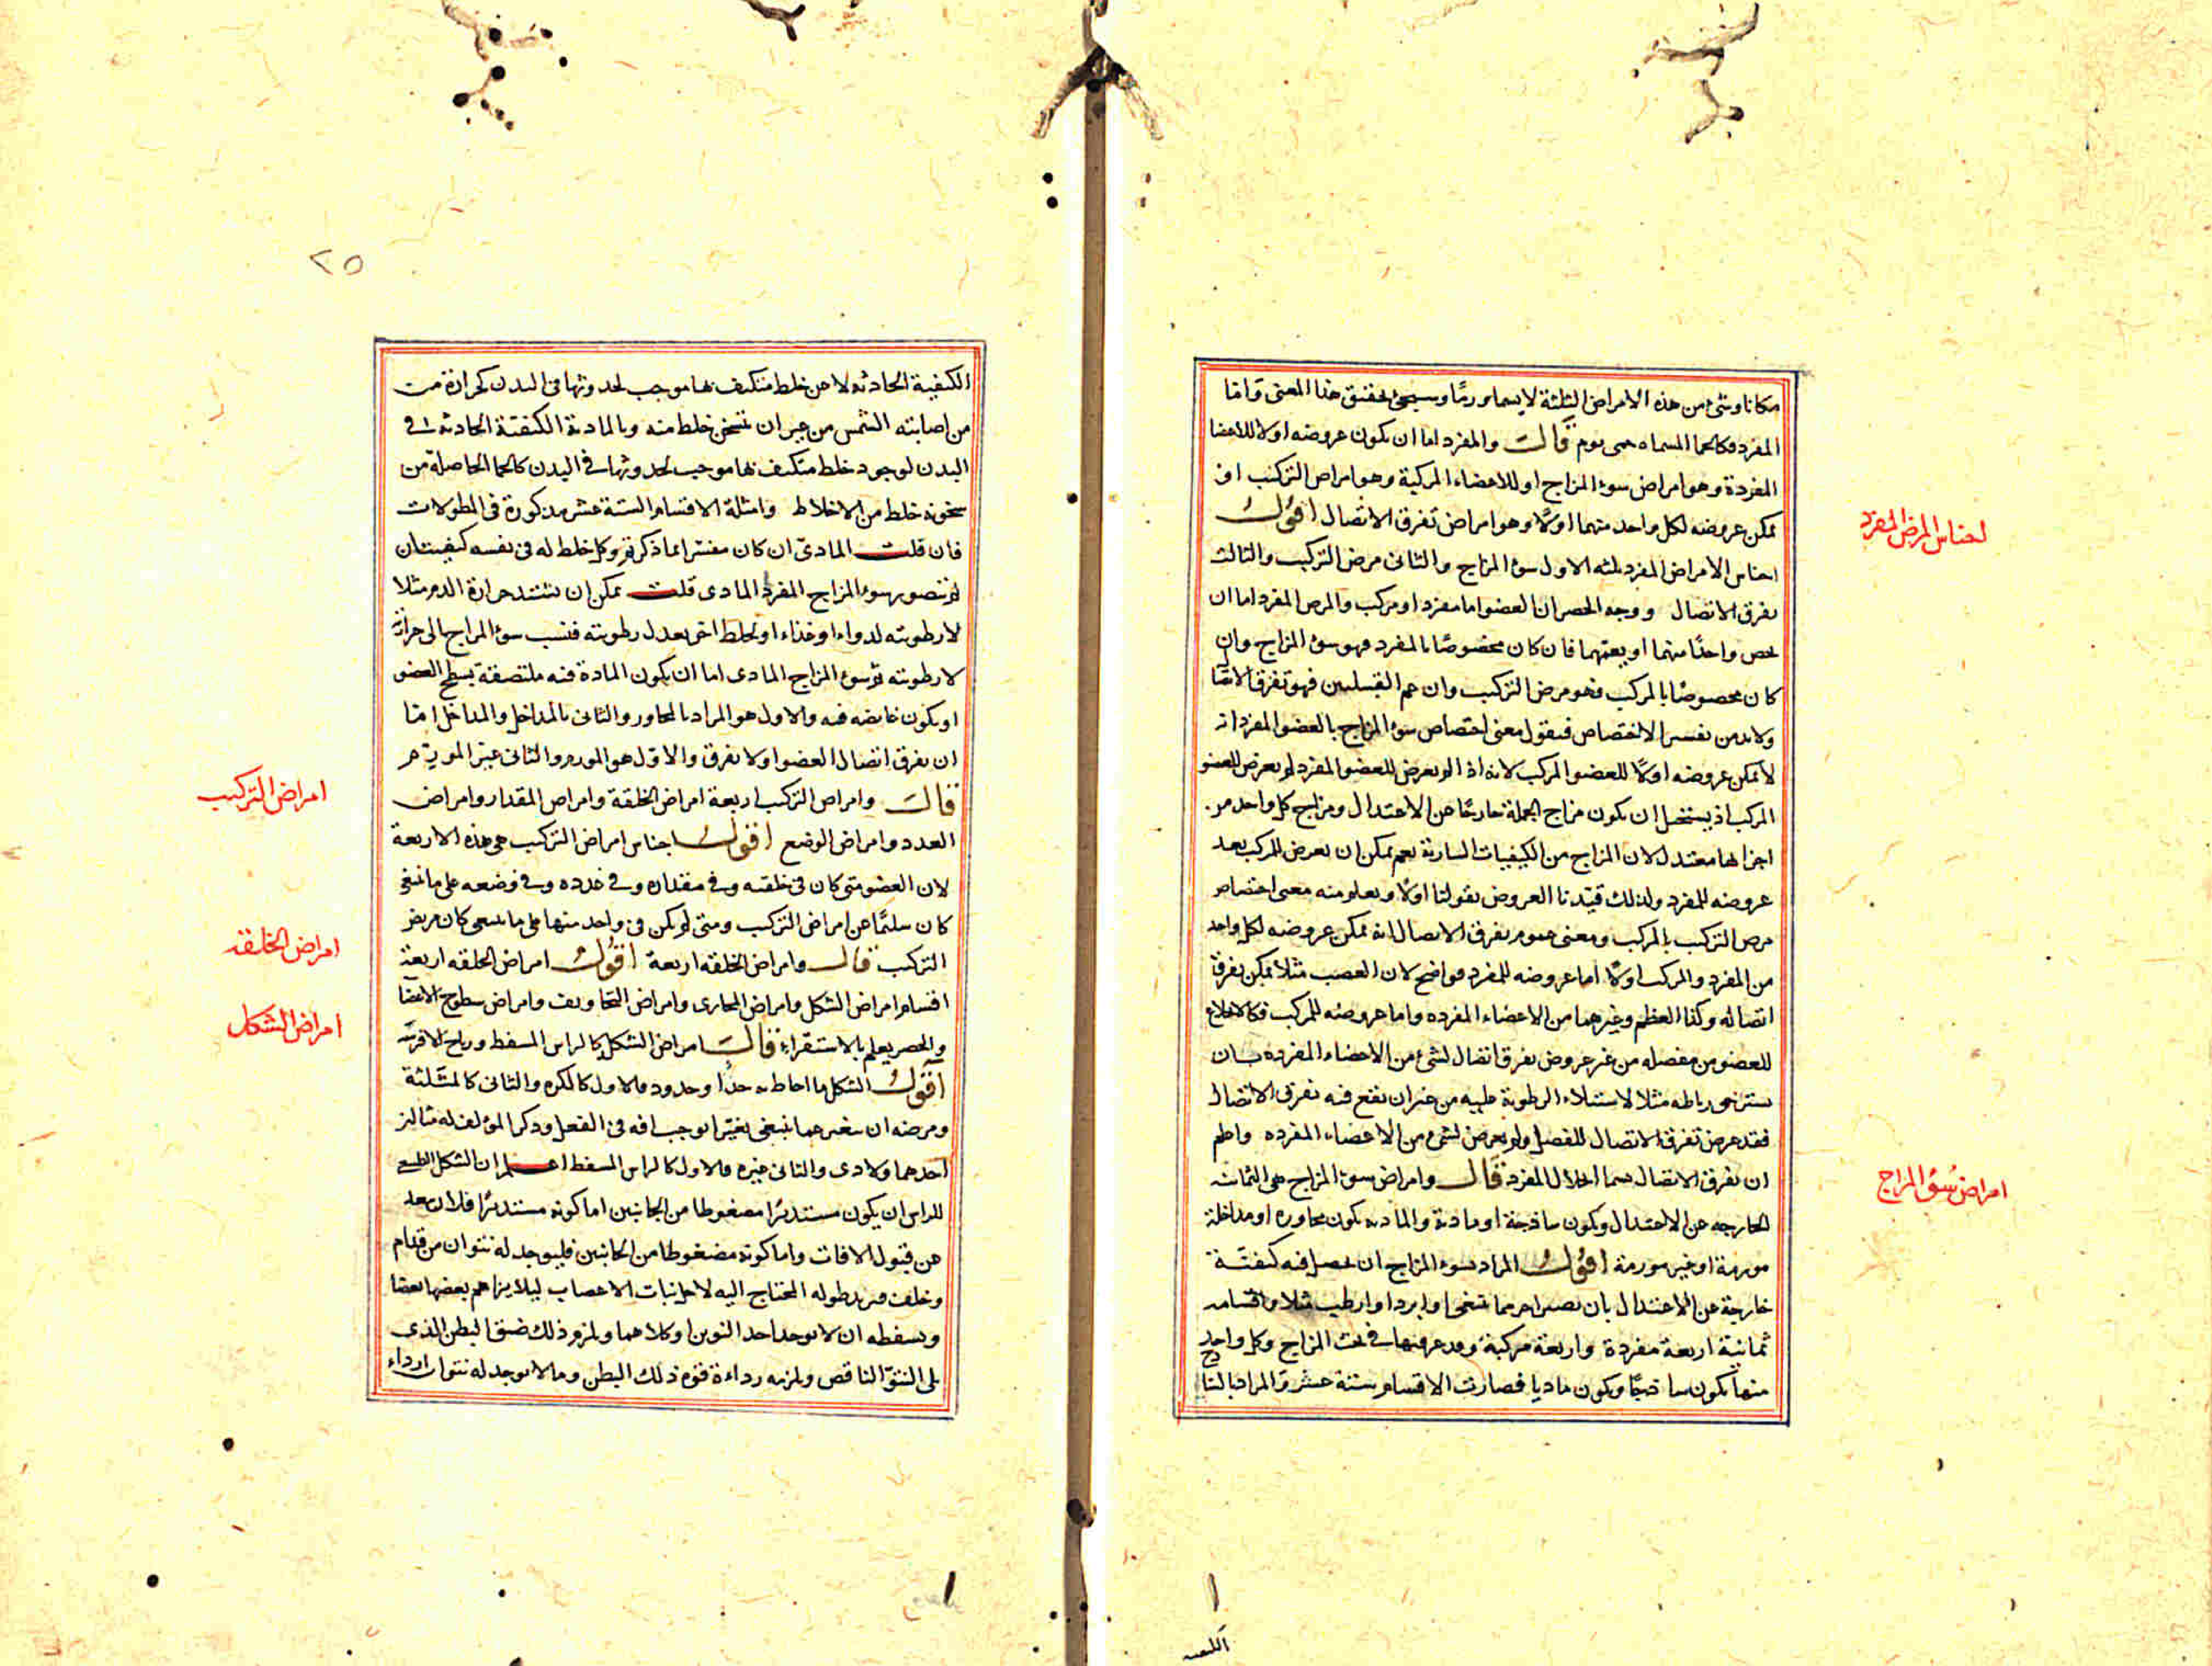 مكانا وشئ من هذه الامراض الثلثة لا يسما ورمًا وسيجئ تحقيق هذا المعنى واما
المفرد فكالحما المسماه حمى يوم قالت والمفرد اما ان يكون عروضه اولا للاعضا
المفردة وهو امراض سوء المزاج او للاعضاء المركبة وهو امراض التركيب او
يمكن عروضه لكل واحد منهما اولًا وهو امراض تفرق الاتصال اقول
اجناس الامراض المفرد ثلثه الاول سوء المزاج والثانى مرض التركيب والثالث
تفرق الاتصال ووجه الحصر ان العضو اما مفرد او مركب والمرض المفرد اما ان
يخص واحدًا منهما او يعمهما فان كان مخصوصًا بالمفرد فهو سوء المزاج وان
كان مخصوصًا بالمركب فهو مرض التركيب وان عم القبيلين فهو تفرق الاتصا
ولابد من تفسير الاختصاص فنقول معنى اختصاص سوء المزاج بالعضو المفرد انه
لا يمكن عروضه اولًا للعضو المركب لانه اذا لم يعرض للعضو المفرد لم يعرض للعضو
المركب اذ يستحيل ان يكون مزاج الجملة خارجًا عن الاعتدال ومزاج كل واحد من
اجزائها معتدل لان المزاج من الكيفيات السارية نعم يمكن ان يعرض للمركب بعد
عروضه للمفرد ولذلك قيّدنا العروض بقولنا اولًا ويعلم منه معنى اختصاص
مرض التركيب بالمركب ومعنى عموم تفرق الاتصال انه يمكن عروضه لكل واحد
من المفرد والمركب اولًا اما عروضه للمفرد فواضح لان العصب مثلا يمكن تفرق
اتصاله وكذا العظم وغيرهما من الاعضاء المفرده واما عروضه للمركب فكالانخلاع
للعضو من مفصله من غير عروض تفرق اتصال لشئ من الاعضاء المفرده بان
يسترخى رباطه مثلا لاستيلاء الرطوبة عليه من غير ان يقع فيه تفرق الاتصال
فقد عرض تفرق الاتصال للمفصل ولم يعرض لشئ من الاعضاء المفرده واعلم
ان تفرق الاتصال يسما انحلال المفرد قال وامراض سوء المزاج هى الثمانية
الخارجه عن الاعتدال ويكون ساذجة او مادية والماديه يكون مجاوره او مداخلة
مورمة او غير مورمة اقول المراد بسوء المزاج ان يحصل فيه كيفيّة
خارجة عن الاعتدال بان يصير احر مما ينبغى او ابرد او ارطب مثلا واقسامه
ثمانية اربعة مفردة واربعة مركبة وقد عرفتها فى بحث المزاج وكل واحد
منها يكون ساذجًا ويكون ماديا فصارت الاقسام ستة عشر والمراد بالسا
ذج
اجناس المرض المفرد
امراض سوء المزاج
الكيفية
٢٥
الكيفية الحادثه لا عن خلط متكيف بها موجب لحدوثها فى البدن كحرارة من
من اصابته الشمس من غير ان تسخن خلط منه وبالمادية الكيفيّة الحادثه فى
البدن لوجود خلط متكيف بها موجب لحدوثها فى البدن كالحما الحاصلة من
سخونة خلط من الاخلاط وامثلة الاقسام الستة عشر مذكورة فى المطولات
فان قلت المادىّ ان كان مفسّرا بما ذكرتم وكل خلط له فى نفسه كيفيتان
لم يتصور سوء المزاج المفرد المادى قلت يمكن ان تشتد حرارة الدم مثلا
لا رطوبته لدواء او غذاء او لخلط اخر يعدل رطوبته فنسب سوء المزاج الى حرارته
لا رطوبته ثم سوء المزاج المادى اما ان يكون المادة فيه ملتصقة بسطح العضو
او يكون غايضه فيه والاول هو المراد بالمجاور والثانى بالمداخل والمداخل اما
ان يفرق اتصال العضو او لا يفرق والاول هو المورم والثانى غير المورم
قالت وامراض التركيب اربعة امراض الخلقة وامراض المقدار وامراض
العدد وامراض الوضع اقول اجناس امراض التركيب هى هذه الاربعة
لان العضو متى كان فى خلقته وفى مقداره وفى عدده وفى وضعه على ما ينبغى
كان سليمًا عن امراض التركيب ومتى لم يكن فى واحد منها على ما ينبغى كان مريض
التركيب قال وامراض الخلقه اربعة اقول امراض الخلقه اربعة
اقسام امراض الشكل وامراض المجارى وامراض التجاويف وامراض سطوح الاعضا
والحصر يعلم بالاستقراء قالت امراض الشكل كالراس المسفط ورياح الافرسه
اقول الشكل ما احاط به حدٌ او حدود فالاول كالكره والثانى كالمثلثة
ومرضه ان يتغير عما ينبغى تغيّرا يوجب افه فى الفعل وذكر المؤلف له مثالين
احدهما ولادى والثانى غيره فالاول كالراس المسفط اعلم ان الشكل الطبيعى
للراس ان يكون مستديرًا مضغوطا من الجانبين اما كونه مستديرًا فلان يبعد
عن قبول الافات واما كونه مضغوطا من الجانبين فليوجد له نتوان من قدام
وخلف فيزيد طوله المحتاج اليه لاجل نبات الاعصاب ليلا يزاحم بعضها بعضا
وتسفطه ان لا يوجد احد النتوين او كلاهما ويلزم ذلك ضيق البطن الذى
يلى النتوّ الناقص ويلزمه رداءة قوة ذلك البطن وما لا يوجد له نتوان ارداء
امراض التركيب
امراض الخلقه
امراض الشكل